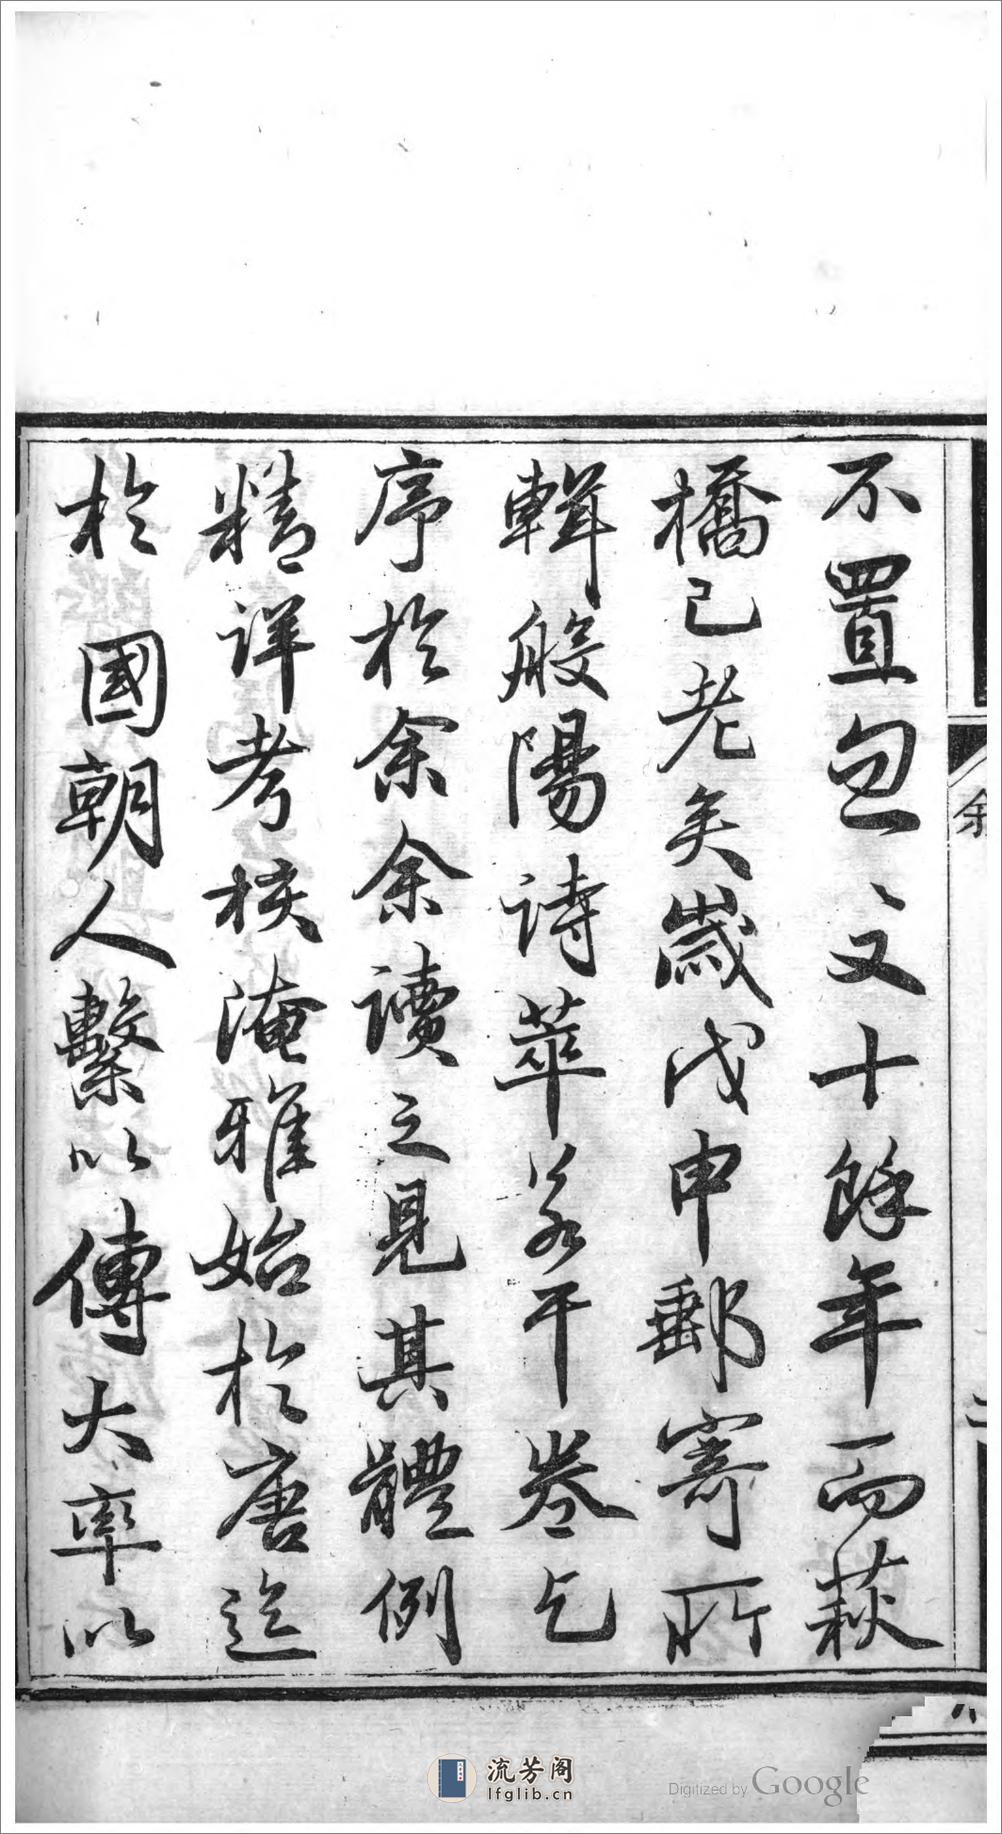 不置忽〻又十餘年而萩
橋已老矣歲戊申郵寄所
輯般陽詩萃若干卷乞
序於余余讀之見其體例
精詳考核淹雅始於唐迄
於 國朝人繫以傳大率以
流芳阁
lfglib.cn
Digitized by Google